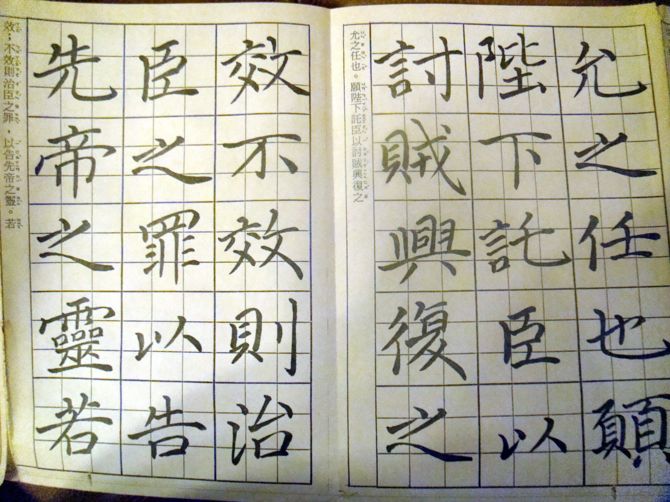 允之任也願
陛下託臣以
討賊興復之
允之任也。願陛下託臣以討賊興復之
效不效則治
臣之罪以告
先帝之靈若
效;不效則治臣之罪,以告先帝之靈。若